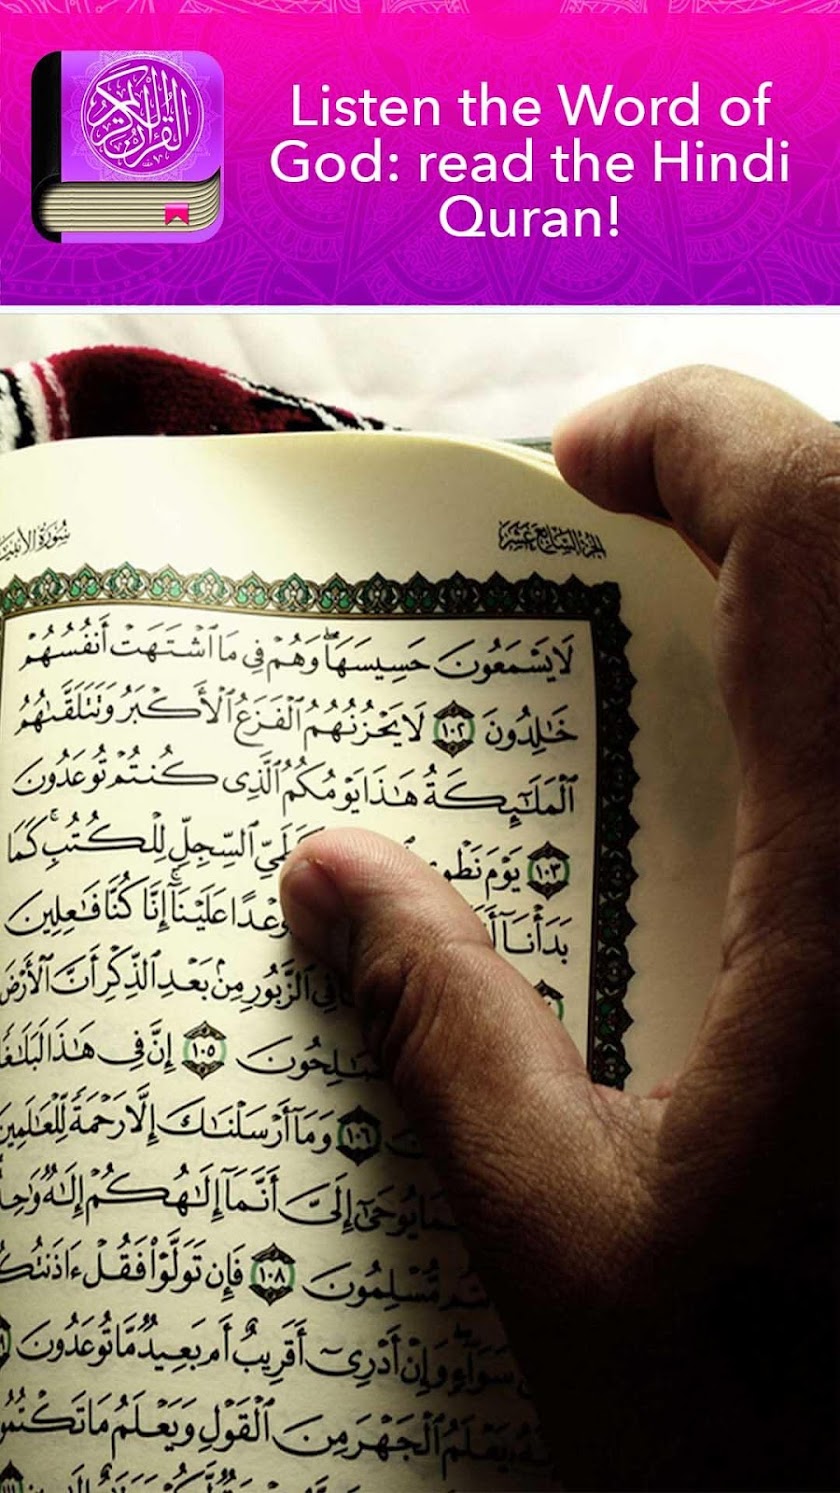 Listen the Word of
God: read the Hindi
Quran!
الجزء السابع عشر
سورة
لَا يَسْمَعُونَ حَسِيسَهَا ۖ وَهُمْ فِي مَا ٱشْتَهَتْ أَنفُسُهُمْ
خَٰلِدُونَ ١٠٢ لَا يَحْزُنُهُمُ ٱلْفَزَعُ ٱلْأَكْبَرُ وَتَتَلَقَّىٰهُمُ
ٱلْمَلَٰٓئِكَةُ هَٰذَا يَوْمُكُمُ ٱلَّذِى كُنتُمْ تُوعَدُونَ
١٠٣ يَوْمَ ٱلسِّجِلِّ لِلْكُتُبِ ۚ كَمَا
بَدَأْنَآ عَلَيْنَآ ۚ إِنَّا كُنَّا فَٰعِلِينَ
ٱلزَّبُورِ مِنۢ بَعْدِ ٱلذِّكْرِ أَنَّ ٱلْأَرْضَ
١٠٥ إِنَّ فِى هَٰذَا
١٠٦ وَمَآ أَرْسَلْنَٰكَ إِلَّا رَحْمَةً لِّلْعَٰلَمِينَ
يُوحَىٰٓ إِلَىَّ أَنَّمَآ إِلَٰهُكُمْ إِلَٰهٌ
مُّسْلِمُونَ ١٠٨ فَإِن تَوَلَّوْا۟ فَقُلْ
سَوَآءٍ ۖ وَإِنْ أَدْرِىٓ أَقَرِيبٌ أَم بَعِيدٌ مَّا تُوعَدُونَ
يَعْلَمُ ٱلْجَهْرَ مِنَ ٱلْقَوْلِ وَيَعْلَمُ مَا